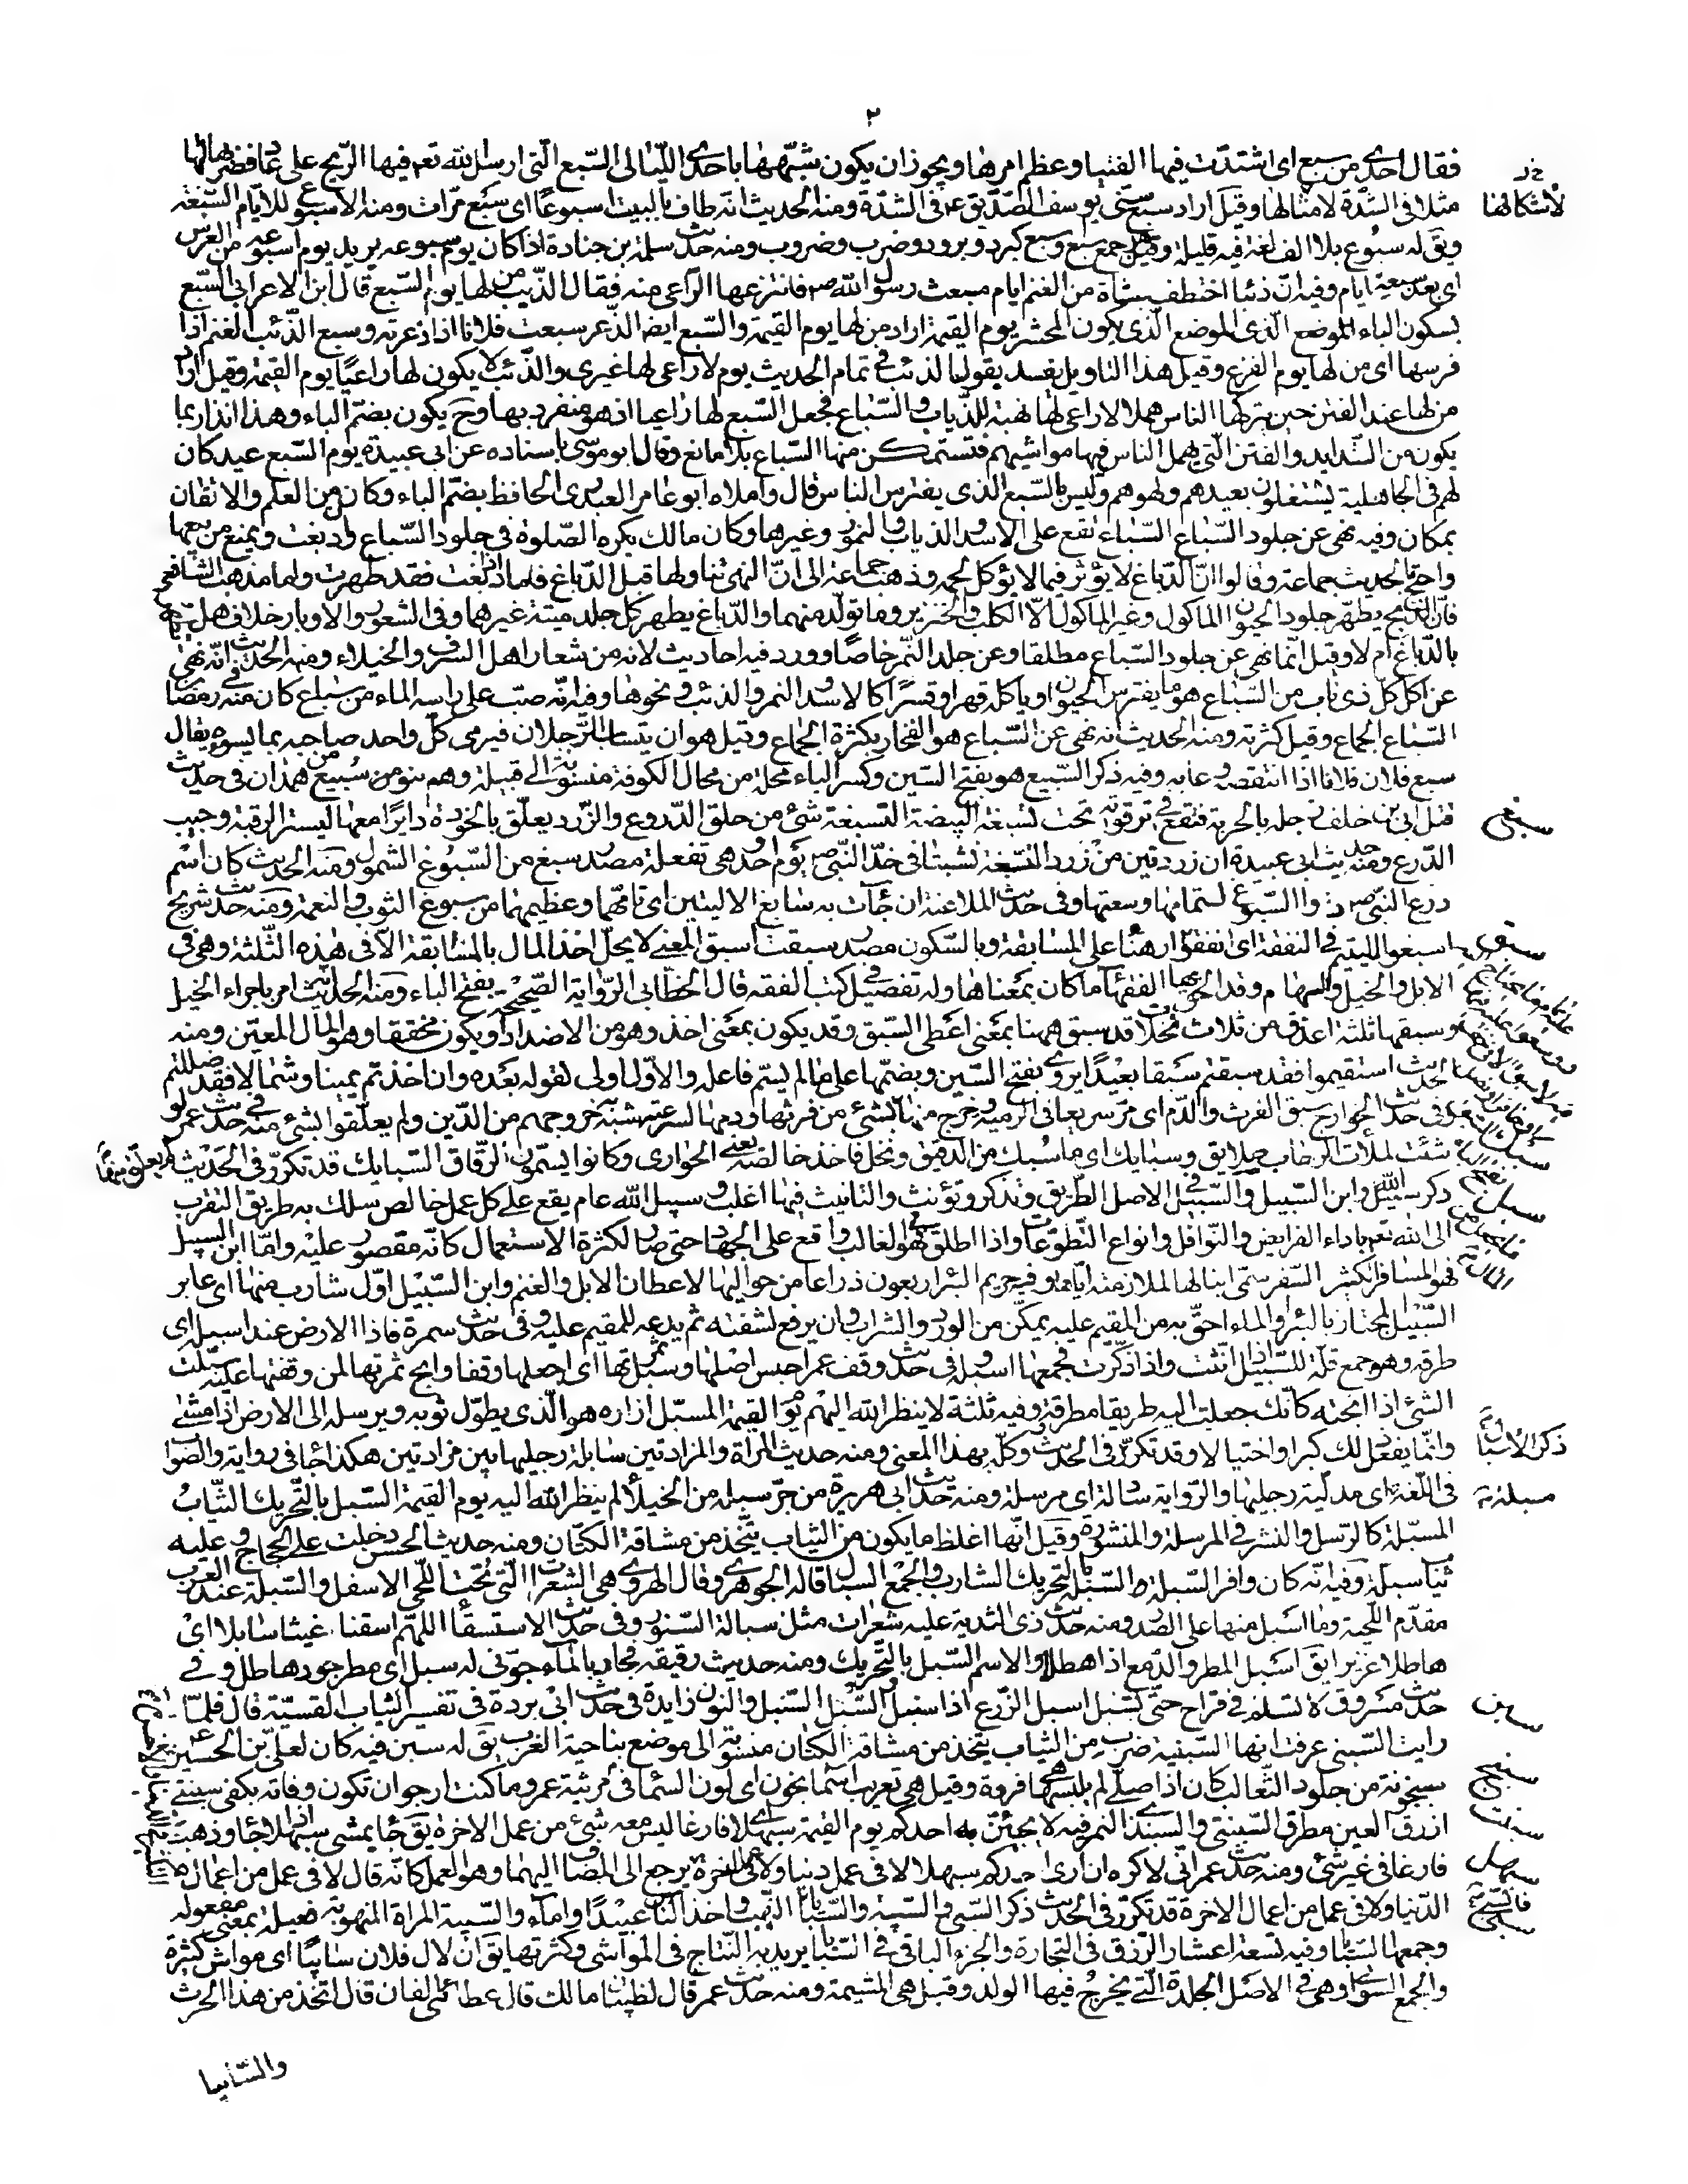 ٢
فقال احدى من سبع اى اشتدّت فيها الفتيا وعظم امرها ويجوز ان يكون شبّهها باحدى الليالى السّبع الّتى ارسل الله تعم فيها الرّيح على عاد فضربها لها
مثلا فى الشّدّة لامثالها وقيل اراد سبع سنى يوسف الصّدّيق ع فى الشّدّة ومنه الحديث انّه طاف بالبيت اسبوعًا اى سبع مرّات ومنه الاسبوع للايّام السّبعة
لاشكالها
ويق له سبوع بلا الف لغة فيه قليلة وقيل هو جمع سبع وسبع كبرد وبرود وضرب وضروب ومنه حديث سلمة بن جنادة اذا كان يوم سبوعه يريد يوم اسبوعه من العرس
اى بعد سبعة ايام وفيه انّ ذئبا اختطف شاة من الغنم ايام مبعث رسول الله ص فانتزعها الرّاعى منه فقال الذّيب من لها يوم السّبع قال ابن الاعرابى السّبع
بسكون الباء الموضع الّذى الموضع الّذى يكون المحشر يوم القيمة اراد من لها يوم القيمة والسّبع ايضا الذّعر سبعت فلانا اذا ذعرته وسبع الذّئب الغنم اذا
فرسها اى من لها يوم الفزع وقيل هذا التاويل يفسد بقول الذئب فى تمام الحديث يوم لا راعى لها غيرى والذّئب لا يكون لها راعيًا يوم القيمة وقيل اراد
من لها عند الفتن حين يتركها الناس هملا لا راعى لها نهبة للذّياب والسّباع فجعل السّبع لها راعيا اذ هو منفرد بها وح يكون بضمّ الباء وهذا انذار بما
يكون من الشّدايد والفتن الّتى يهمل الناس فيها مواشيهم فتستمكن منها السّباع بلا مانع وقال ابو موسى باسناده عن ابى عبيدة يوم السّبع عيد كان
لهم فى الجاهلية يشتغلون بعيدهم ولهوهم وليس بالسّبع الذى يفترس الناس قال واملاه ابو عامر العبدرى الحافظ بضمّ الباء وكان من العلم والاتقان
بمكان وفيه نهى عن جلود السّباع السّباع تقع على الاسد والذياب والنمور وغيرها وكان مالك يكره الصّلوة فى جلود السّباع ولو دبغت ويمنع من بيعها
واحتجّ بالحديث جماعة وقالوا انّ الدّباغ لا يؤثر فيما لا يؤكل لحمه وذهب جماعة الى انّ النهى تناولها قبل الدّباغ فاما اذا دبغت فقد طهرت واما مذهب الشّافعى
فانّ الذّبح يطهّر جلود الحيوان الماكول وغير الماكول الّا الكلب والخنزير وما تولّد منهما والدّباغ يطهر كل جلد ميتة غيرهما وفى الشعور والاوبار خلاف هل
بالدّباغ ام لا وقيل انّما نهى عن جلود السّباع مطلقا وعن جلد النّمر خاصًّا وورد فيه احاديث لانه من شعار اهل السّرف والخيلاء ومنه الحديث انّه نهى
عن اكل كلّ ذى ناب من السّباع هو ما يفترس الحيوان وياكله قهرا وقسرًا كالاسد والنمر والذئب ونحوها وفيه انّه صبّ على راسه الماء من سباع كان منه فى رمضان
السّباع الجماع وقيل كثرته ومنه الحديث انه نهى عن السّباع هو الفخار بكثرة الجماع وقيل هو ان يتسابّ الرّجلان فيرمى كلّ واحد صاحبه بما يسوءه يقال
سبع فلان فلانا اذا انتقصه وعابه وفيه ذكر السّبيع هو بفتح السّين وكسر الباء محلة من محال الكوفة منسوبة الى قبيلة وهم بنو سبيع من همدان فى حديث
سبغ
قتل ابىّ بن خلف زجله بالحربة فتقع فى ترقوته تحت تسبغة البيضة التّسبغة شئ من حلق الدّروع والزّرد يعلّق بالخوذة دايرًا معها ليستر الرقبة وجيب
الدّرع ومنه حديث ابى عبيدة ان زردتين من زرد التّسبغة نشبتا فى خدّ النّبىّ ص يوم احد وهى تفعلة مصدر سبغ من السّبوغ الشمول ومنه الحديث كان اسم
درع النّبىّ ص ذو السّبوغ لتمامها وسعتها وفى حديث الملاعنة ان جآت به سابغ الاليتين اى تامّهما وعظيمهما من سبوغ الثوب والنعمة ومنه حديث شريح
سبق
اسبغوا لليتيم فى النفقة اى انفقوا
الابل والخيل والسهام
وسبقها ثلثة اعذق من ثلاث نخلات قد سبق ههنا بمعنى اعطى السّبق وقد يكون بمعنى اخذ وهو من الاضداد او يكون مخفّفا وهو المال المعيّن ومنه
حديث استقيموا فقد سبقتم سبقا بعيدًا يروى بفتح السّين وبضمّها على ما لم يسمّ فاعله والاول اولى لقوله بعده وان اخذتم يمينا وشمالا فقد ضللتم
وفى حديث الخوارج سبق الفرث والدّم اى مرّ سريعا فى الرّميّة وخرج منها لم يعلق منها بشئ من فرثها ودمها لسرعته شبّه خروجهم من الدّين ولم يعلّقوا بشئ منه فى حديث عمر لو
سبك
شئت لملات الرّحاب صلايق وسبايك اى ما سبك من الدقيق ونخل فاخذ خالصه يعنى الحوارى وكانوا يسمّون الرّقاق السّبايك قد تكرّر فى الحديث
سبل
ذكر سبيل الله وابن السّبيل والسّبيل فى الاصل الطّريق وتذكّر وتؤنث والتانيث فيها اغلب وسبيل الله عام يقع على كل عمل خالص سلك به طريق التقرب
الى الله تعم باداء الفرايض والنّوافل وانواع التّطوّعات واذا اطلق فهو فى الغالب واقع على الجهاد حتى صار لكثرة الاستعمال كانّه مقصور عليه وامّا ابن السّبيل
فهو المسافر الكثير السّفر سمّى ابنا لها لملازمته ايّاها وفيه حريم البئر اربعون ذراعا من حواليها لاعطان الابل والغنم وابن السّبيل اوّل شارب منها اى عابر
السّبيل المجتاز بالبئر او الماء احقّ به من المقيم عليه يمكّن من الورد والشراب وان يرفع لشفته ثم يدعه للمقيم عليه وفى حديث سمرة فاذا الارض عند اسبله اى
طرقه وهو جمع قلّة للسّبيل اذا انّثت واذا ذكّرت فجمعها اسبلة وفى حديث وقف عمر احبس اصلها وسبّل ثمرتها اى اجعلها وقفا وابح ثمرتها لمن وقفتها عليه سبّلت
الشئ اذا ابحته كانّك جعلت اليه طريقا مطرقة وفيه ثلثة لا ينظر الله اليهم يوم القيمة المسبل ازاره هو الّذى يطوّل ثوبه ويرسله الى الارض اذا مشى
ذكر الاسبال
وانّما يفعل ذلك كبرا واختيالا وقد تكرّر فى الحديث وكلّه بهذا المعنى ومنه حديث المراة والمزادتين سابلة رجليها بين مزادتين هكذا جا فى رواية والصّواب
مسبلة
فى اللّغة اى مدلّية رجليها والرّواية سادلة اى مرسلة ومنه حديث ابى هريرة من جرّ سبله من الخيلاء لم ينظر الله اليه يوم القيمة السّبل بالتّحريك الثّياب
المسبّلة كالرّسل والنشر فى المرسلة والمنشورة وقيل انّها اغلظ ما يكون من الثياب يتّخذ من مشاقة الكتّان ومنه حديث الحسن دخلت على الحجّاج وعليه
ثياب سبلة وفيه انّه كان وافر السّبلة السّبلة بالتحريك الشارب والجمع السبال قاله الجوهرى وقال الهروى هى الشعرات الّتى تحت اللّحى الاسفل والسّبلة عند العرب
مقدّم اللّحية وما اسبل منها على الصّدر ومنه حديث ذى الثدية عليه شعرات مثل سبالة السّنّور وفى حديث الاستسقا اللهمّ اسقنا غيثا سابلا اى
هاطلا غزيرا يق اسبل المطر والدّمع اذا هطلا والاسم السّبل بالتّحريك ومنه حديث رقيقة فجاد بالماء جونى له سبل اى مطر جود هاطل وفى
حديث مسروق لا تسلم فى قراح حتى يسبل اسبل الزّرع اذا سنبل والسّبل السّنبل والنون زايدة فى حديث ابى بردة فى تفسير الثياب القسيّة قال فلمّا
سبن
رايت السّبنى عرفت انها السّبنية ضرب من الثياب يتّخذ من مشاقة الكتّان منسوبة الى موضع بناحية المغرب يق له سبن فيه كان لعلىّ بن الحسين
سبنج
سبنجونة من جلود الثّعالب كان اذا صلّى لم يلبسها هى فروة وقيل هى تعريب اسمانجون اى لون السّما فى مرثية عمر وما كنت ارجو ان تكون وفاته بكفى سبنتى
سبنت
ازرق العين مطرق السّبنتى والسّبندى النمر فيه لا يجيئنّ احدكم يوم القيمة سبهللا اى فارغا ليس معه شئ من عمل الاخرة يق جا يمشى سبهللا اذا جا وذهب
سبهل
فارغا فى غير شئ ومنه حديث عمر انّى لاكره ان ارى احدكم سبهللا لا فى عمل دنيا ولا فى عمل اخرة يرجع الى المضاف اليهما وهو العمل كانّه قال لا فى عمل من اعمال
الدّنيا ولا فى عمل من اعمال الاخرة قد تكرّر فى الحديث ذكر السّبى والسّبيّة والسّبايا النّهب واخذ النّاس عبيدًا واماء والسّبيّة المراة المنهوبة فعيلة بمعنى مفعولة
سبى
وجمعها السّبايا وفيه تسعة اعشار الرّزق فى التجارة والجزء الباقى فى السّابيا يريد به النّتاج فى المواشى وكثرتها يق انّ لال فلان سابيا اى مواشى كثيرة
والجمع السّوابى وهى فى الاصل الجلدة الّتى يخرج فيها الولد وقيل هى المشيمة ومنه حديث عمر قال لظبيان ما مالك قال عطائى الفان قال اتّخذ من هذا الحرث
والسّابيا